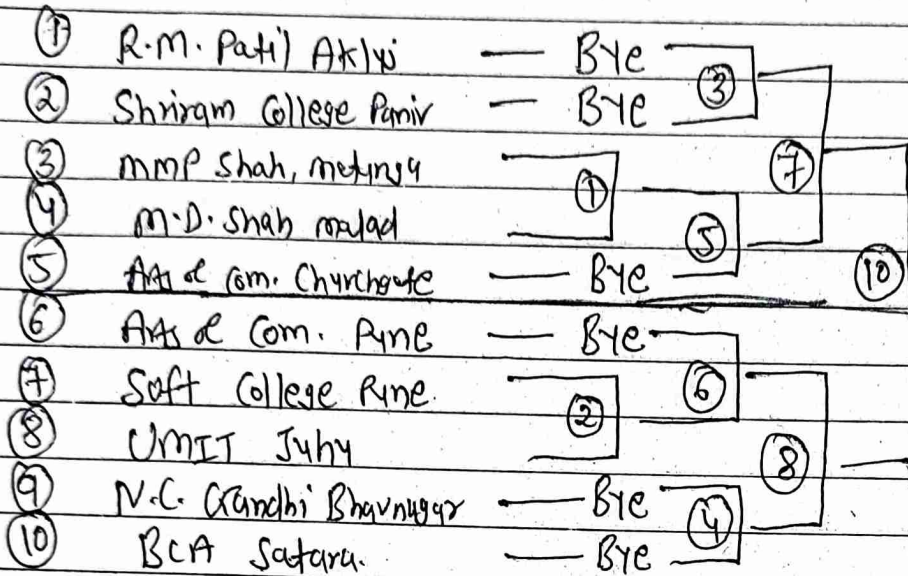 ① R.M. Patil Akluj — Bye
③
② Shriram College Paniv — Bye
③ MMP Shah, Matunga
① ⑦
④ M.D. Shah malad
⑤
⑤ Arts & Com. Churchgate — Bye
⑩
⑥ Arts & Com. Pune — Bye
⑦ Soft College Pune.
⑥
②
⑧ UMIT Juhu
⑧
⑨ N.C. Gandhi Bhavnagar — Bye
④
⑩ BCA Satara. — Bye